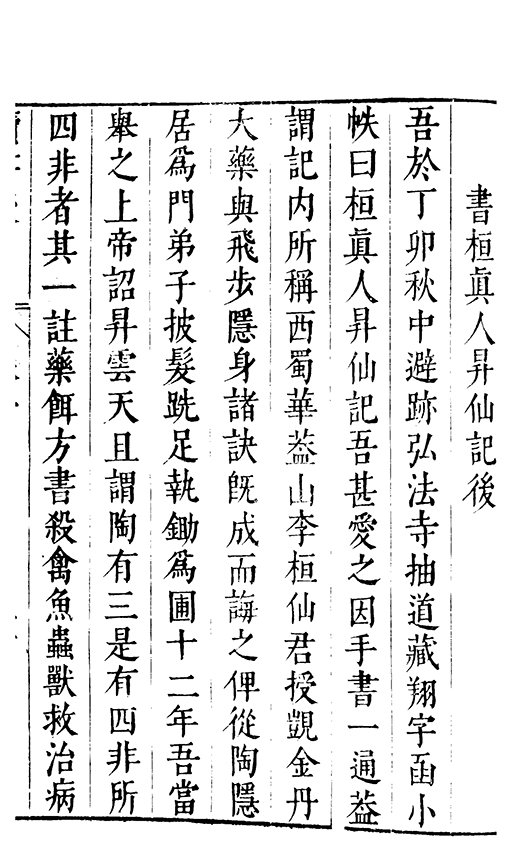 書桓眞人昇仙記後
吾於丁卯秋中避跡弘法寺抽道藏翔字凾小
帙曰桓眞人昇仙記吾甚愛之因手書一通葢
謂記内所稱西蜀華葢山李桓仙君授覬金丹
大藥與飛步隱身諸訣旣成而誨之俾從陶隱
居爲門弟子披髮跣足執鋤爲圃十二年吾當
舉之上帝詔昇雲天且謂陶有三是有四非所
四非者其一註藥餌方書殺禽魚蟲獸救治病